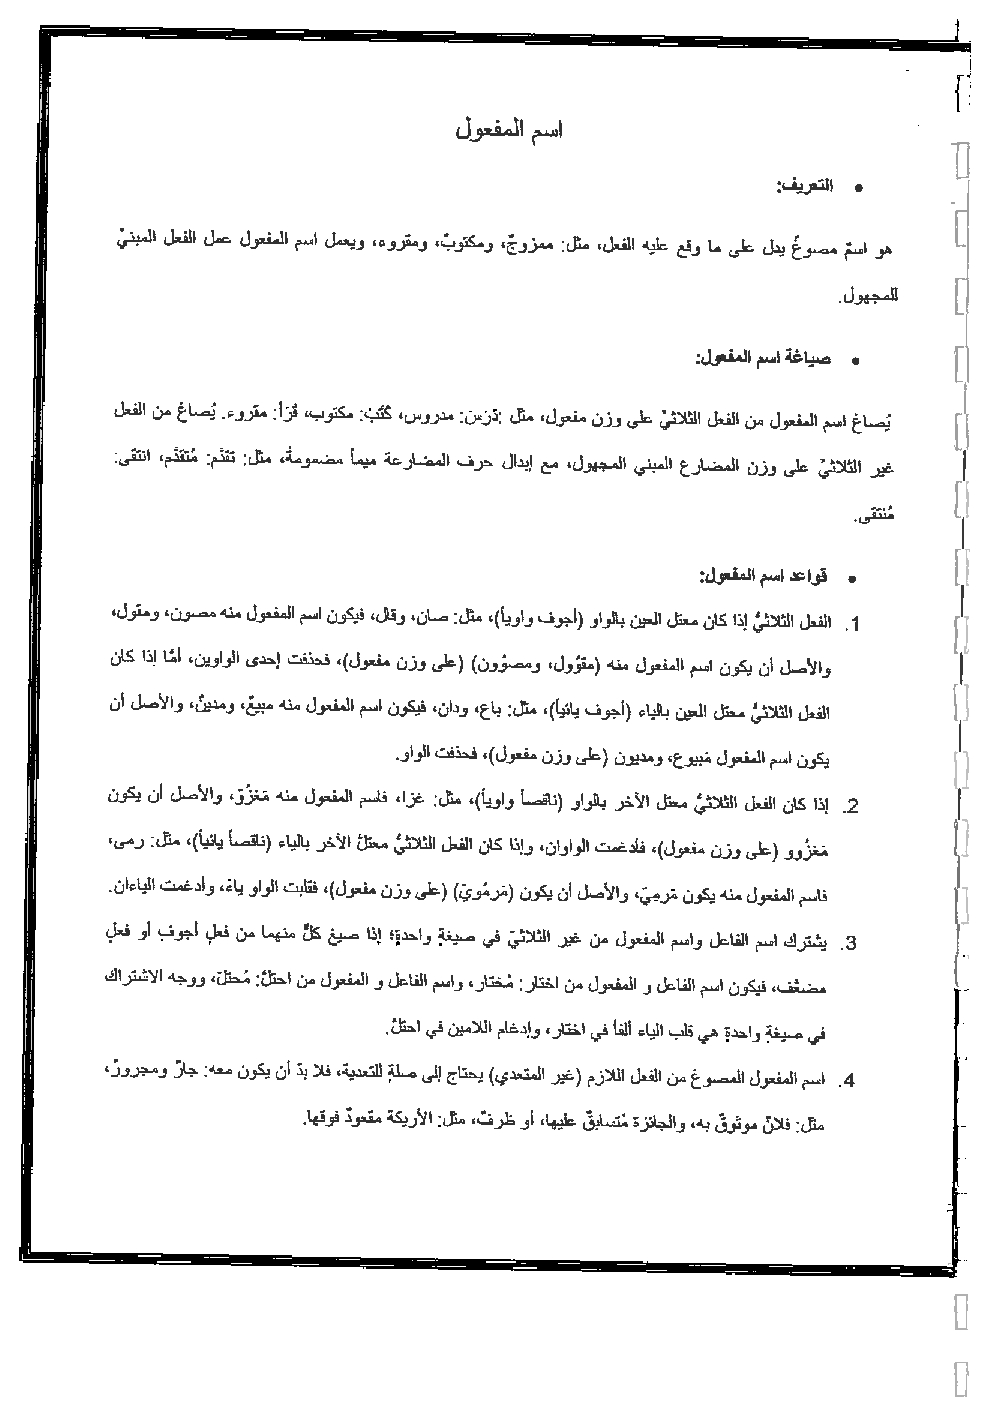 اسم المفعول
• التعريف:
هو اسمٌ مصوغٌ يدل على ما وقع عليه الفعل، مثل: ممزوجٌ، ومكتوبٌ، ومقروء، ويعمل اسم المفعول عمل الفعل المبنيّ
للمجهول.
• صياغة اسم المفعول:
يُصاغ اسم المفعول من الفعل الثلاثيّ على وزن مفعول، مثل :دَرَسَ: مدروس، كُتَبُ: مكتوب، قُرَأ: مقروء. يُصاغ من الفعل
غير الثلاثيّ على وزن المضارع المبني المجهول، مع إبدال حرف المضارعة ميماً مضمومةً، مثل: تقدَّم: مُتقدَّم، انتقى:
مُنتقى.
• قواعد اسم المفعول:
1. الفعل الثلاثيُّ إذا كان معتل العين بالواو (أجوف واوياً)، مثل: صان، وقال، فيكون اسم المفعول منه مصون، ومقول،
والأصل أن يكون اسم المفعول منه (مقوُول، ومصوُون) (على وزن مفعول)، فحذفت إحدى الواوين، أمّا إذا كان
الفعل الثلاثيُّ معتل العين بالياء (أجوف يائياً)، مثل: باع، ودان، فيكون اسم المفعول منه مبيعٌ، ومدينٌ، والأصل أن
يكون اسم المفعول مَبيوع، ومديون (على وزن مفعول)، فحذفت الواو.
2. إذا كان الفعل الثلاثيُّ معتل الآخر بالواو (ناقصاً واوياً)، مثل: غزا، فاسم المفعول منه مَغزُوّ، والأصل أن يكون
مَغزُوو (على وزن مفعول)، فأدغمت الواوان، وإذا كان الفعل الثلاثيُّ معتلَّ الآخر بالياء (ناقصاً يائياً)، مثل: رمى،
فاسم المفعول منه يكون مَرميّ، والأصل أن يكون (مَرمُويّ) (على وزن مفعول)، فقلبت الواو ياءً، وأدغمت الياءان.
3. يشترك اسم الفاعل واسم المفعول من غير الثلاثيّ في صيغةٍ واحدةٍ؛ إذا صيغ كلٌّ منهما من فعلٍ أجوفٍ أو فعلٍ
مضعّف، فيكون اسم الفاعل و المفعول من اختار: مُختار، واسم الفاعل و المفعول من احتلَّ: مُحتلّ، ووجه الاشتراك
في صيغةٍ واحدةٍ هي قلب الياء ألفاً في اختار، وإدغام اللامين في احتلَّ.
4. اسم المفعول المصوغ من الفعل اللازم (غير المتعدي) يحتاج إلى صلةٍ للتعدية، فلا بدّ أن يكون معه: جارٌ ومجرورٌ،
مثل: فلانٌ موثوقٌ به، والجائزة مُتسابقٌ عليها، أو ظرفٌ، مثل: الأريكة مقعودٌ فوقها.